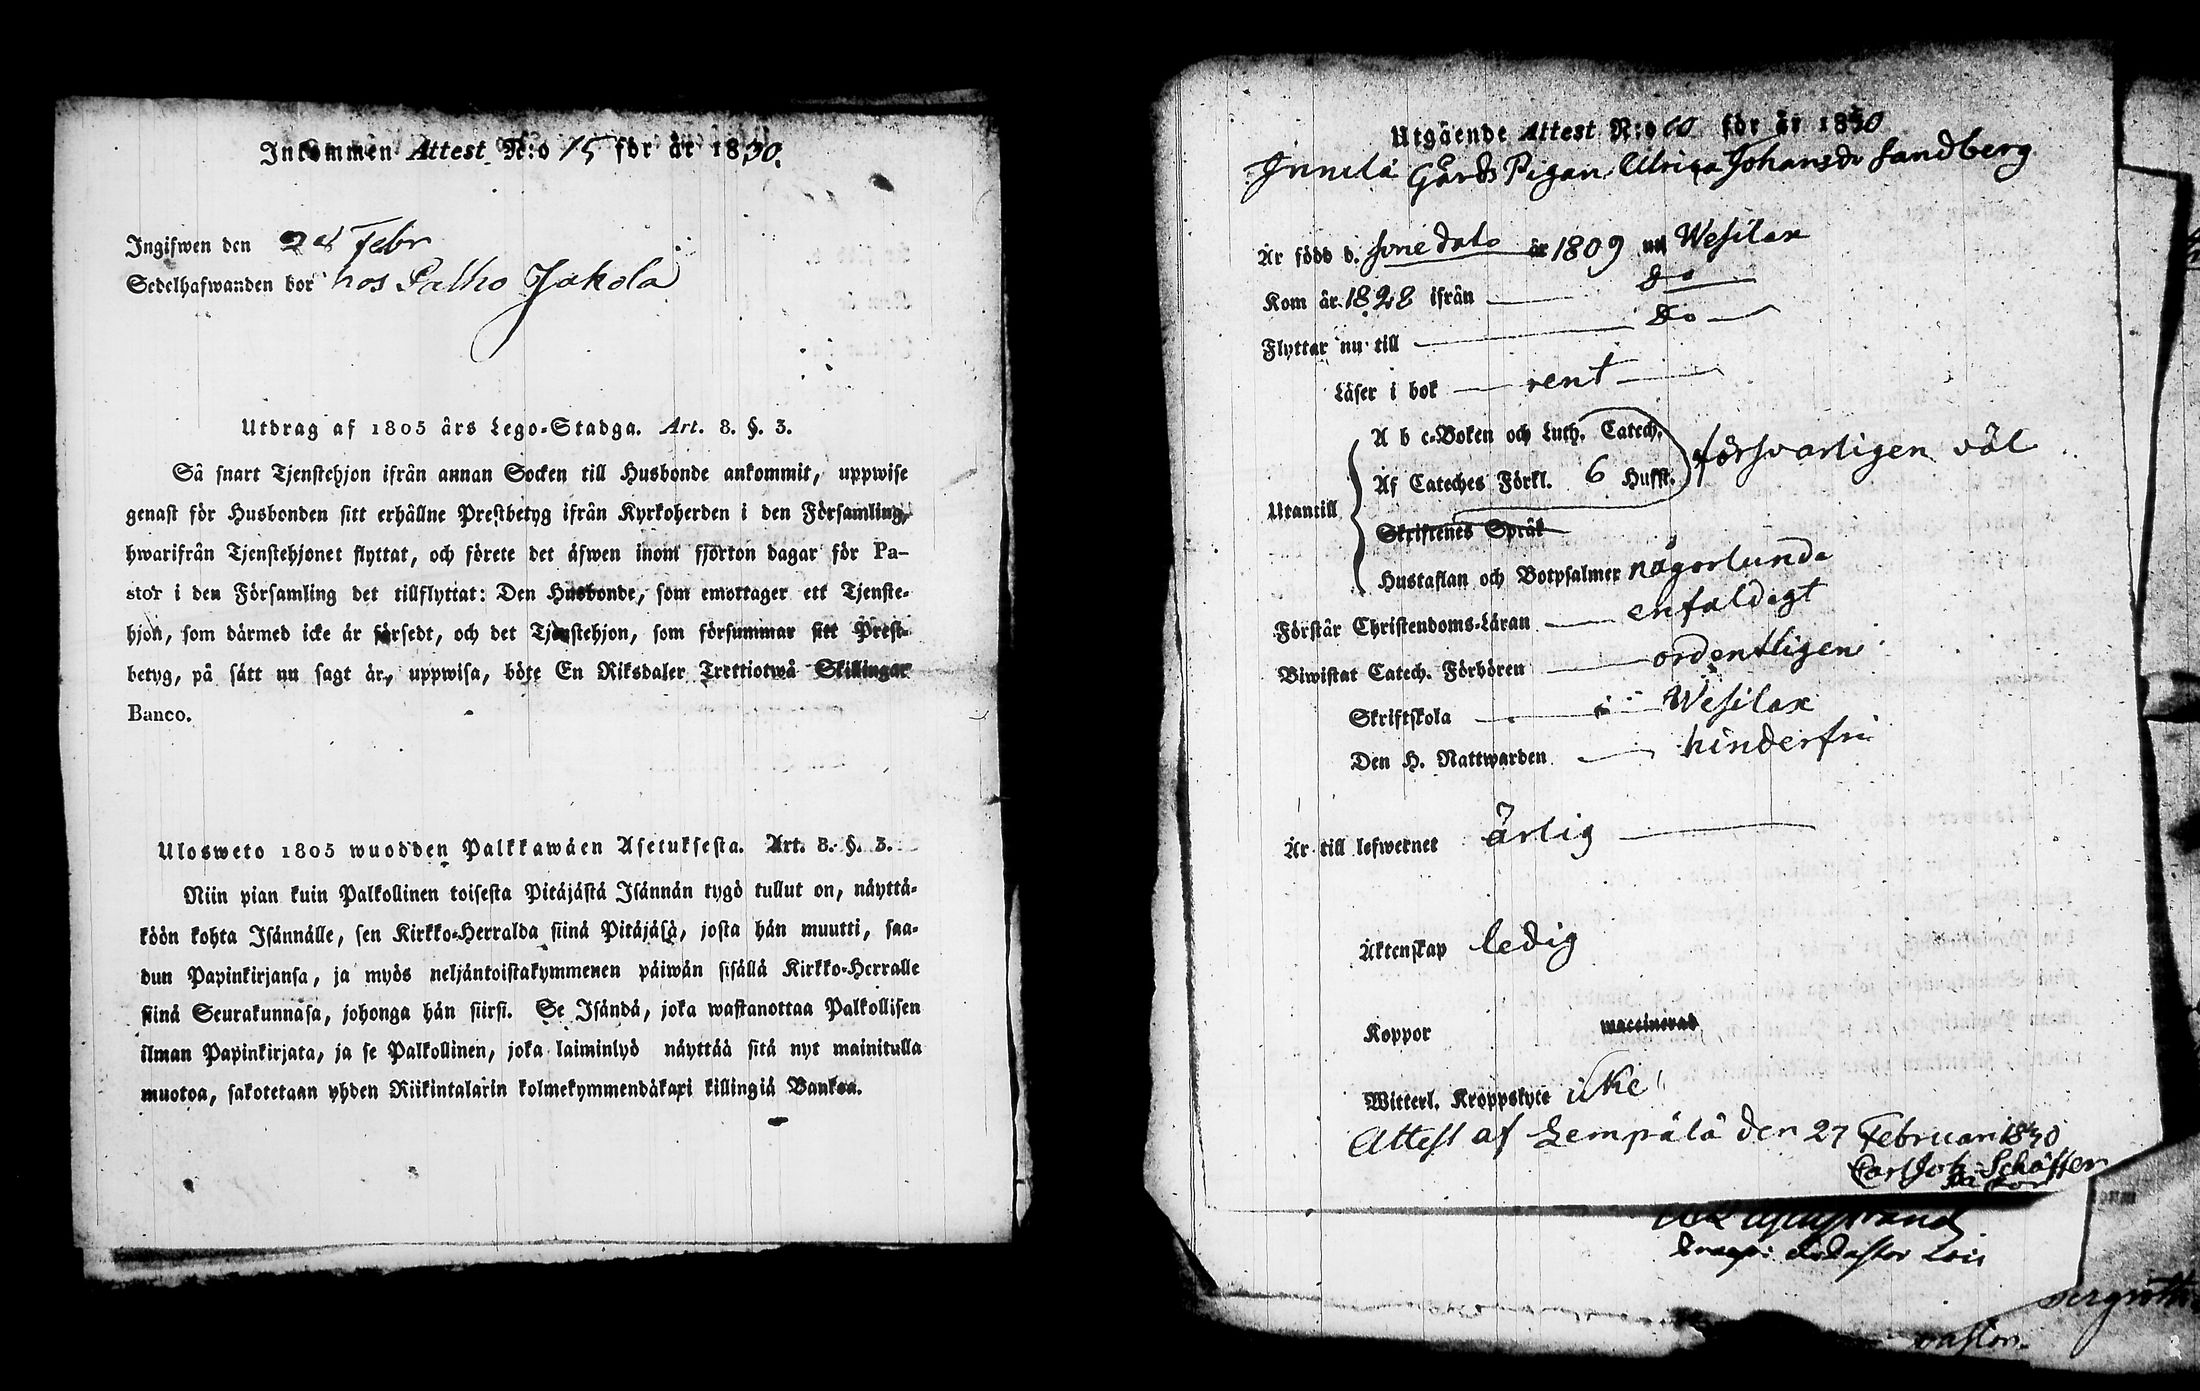 Inkommen Attest N:o 15 för år 1830.
Ingifwen den 28 Febr
Sedelhafwanden bor hos Palho Jakola
Utdrag af 1805 års Lego-Stadga. Art. 8. §. 3.
Så snart Tjenstehjon ifrån annan Socken till Husbonde ankommit, uppwise
genast för Husbonden sitt erhållne Prestbetyg ifrån Kyrkoherden i den Församling,
hwarifrån Tjenstehjonet flyttat, och förete det äfwen inom fjorton dagar för Pa-
stor i den Församling det tillflyttat: Den Husbonde, som emottager ett Tjenste-
hjon, som därmed icke är försedt, och det Tjenstehjon, som försummar sitt Prest-
betyg, på sätt nu sagt är, uppwisa, böte En Riksdaler Trettiotwå Skillingar
Banco.
Ulosweto 1805 wuodden Palkkawäen Asetuksesta. Art. 8. §. 3.
Niin pian kuin Palkollinen toisesta Pitäjästä Isännän tygö tullut on, näyttä-
köön kohta Isännälle, sen Kirkko-Herralda siinä Pitäjäsä, josta hän muutti, saa-
dun Papinkirjansa, ja myös neljäntoistakymmenen päiwän sisällä Kirkko-Herralle
siinä Seurakunnasa, johonga hän siirsi. Se Isändä, joka wastanottaa Palkollisen
ilman Papinkirjata, ja se Palkollinen, joka laiminlyö näyttää sitä nyt mainitulla
muotoa, sakotetaan yhden Riikintalarin kolmekymmendäkaxi killingiä Bankoa.
Utgående Attest N:o 60 för år 1830
Innilä Gårds Pigan Ulrica Johansdr Sandberg
Är född d. sine dato år 1809 uti Wesilax
Kom år 1828 ifrån do
Flyttar nu till do
Läser i bok rent
A b c-Boken och Luth. Catech.
Utantill Af Cateches Förkl. 6 Hufst. försvarligen väl
Skriftenes Språk
Hustaflan och Botpsalmer någorlunda
Förstår Christendoms-Läran enfaldigt
Biwistat Catech. Förhören ordentligen
Skriftskola i Wesilax
Den H. Nattwarden hinderfri
Är till lefwernet ärlig
Äktenskap ledig
Koppor waccinerad
Witterl. Kroppslyte icke
Attest af Lempälä den 27 Februari 1830
Carl Joh. Schäffer
Pastor
pastor.